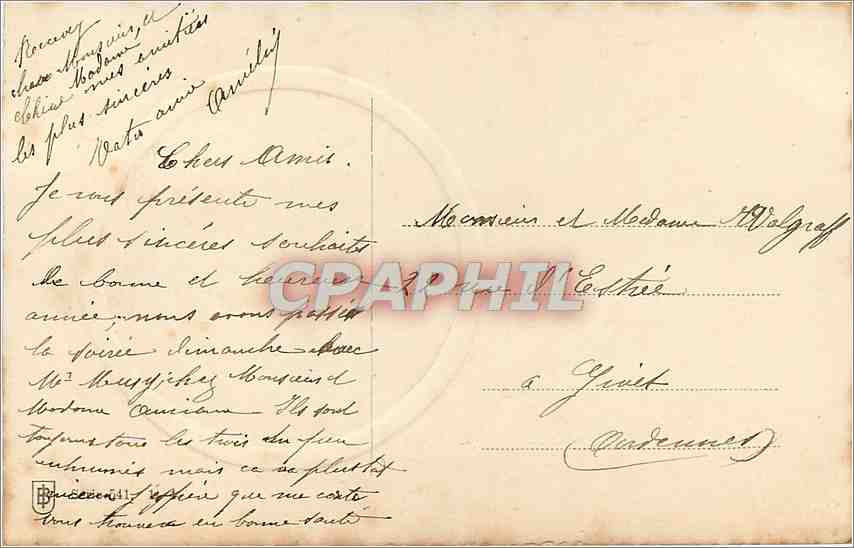 Chers Amis.
Je vous présente mes
plus sincères souhaits
de bonne et heureuse
année, nous avons passé
la soirée dimanche avec
Mr chez Monsieur et
Madame Ils sont
toujours tous les trois un peu
enrhumés mais ca va plus tot
mieux J'espère que ma carte
vous trouvera en bonne santé
Recevez
cher Monsieur, et
Chère Madame,
mes amitiés
les plus sincères
Votre amie
Amélie
Monsieur et Madame Walgraff
22 rue d'Estrée
a Givet
(Ardennes)
CPAPHIL
Serie 541